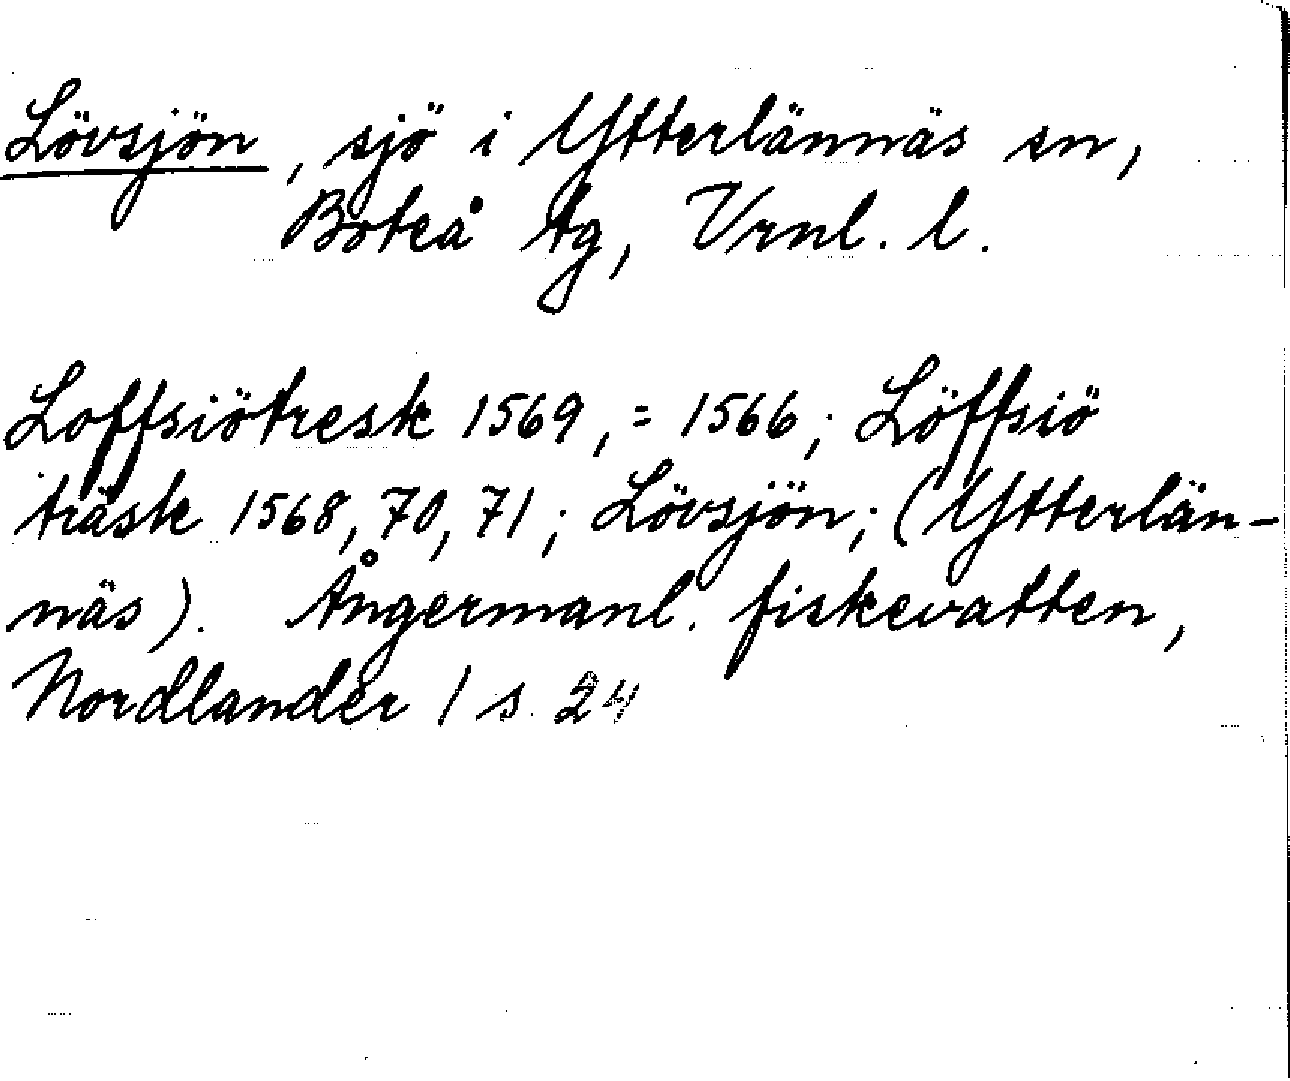 Lövsjön, sjö i Ytterlännäs sn,
Boteå tg, Vrnl. l.
Loffsiötresk 1569, = 1566; Löffsiö
träsk 1568, 70, 71; Lövsjön; (Ytterlän-
näs). Ångermanl. fiskevatten,
Nordlander 1 s. 24